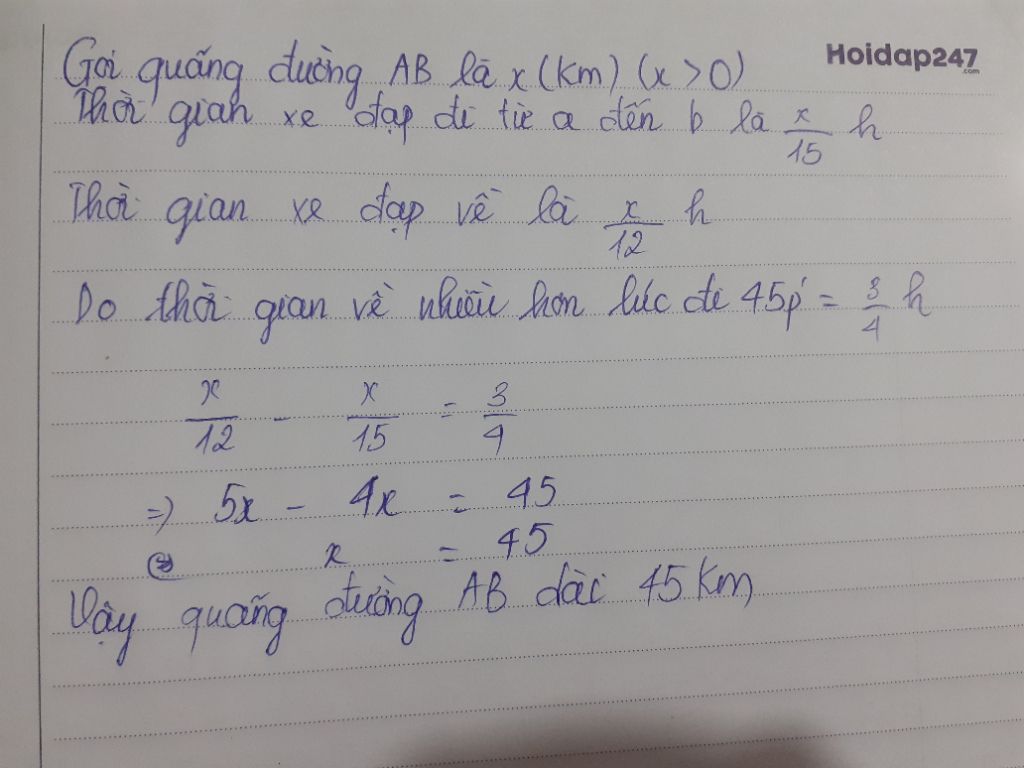 Gọi quãng đường AB là x (km) (x > 0)
Hoidap247
.com
Thời gian xe đạp đi từ a đến b là x/15 h
Thời gian xe đạp về là x/12 h
Do thời gian về nhiều hơn lúc đi 45p' = 3/4 h
x/12 - x/15 = 3/4
=> 5x - 4x = 45
x = 45
Vậy quãng đường AB dài 45 Km